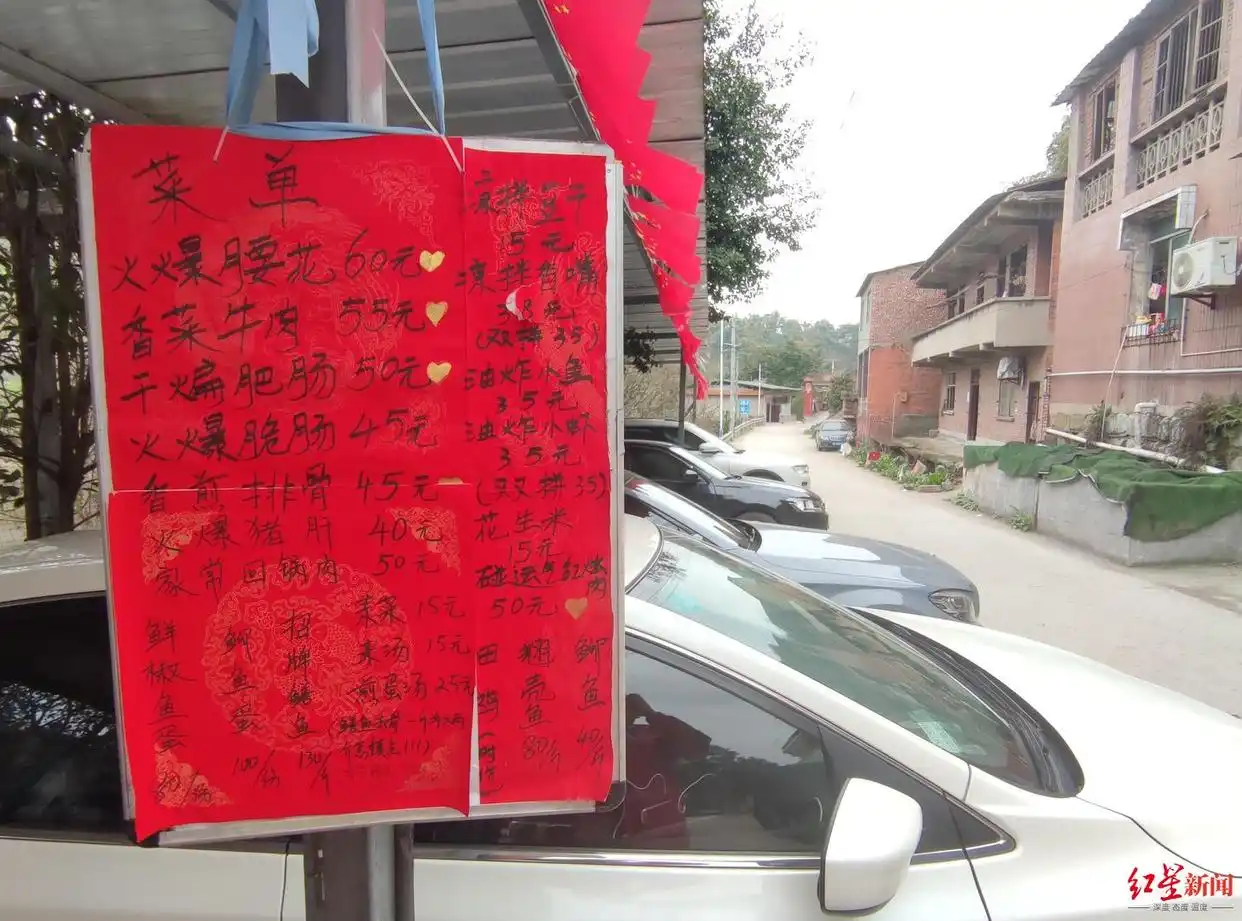 菜单
火爆腰花 60元
香菜牛肉 55元
干煸肥肠 50元
火爆脆肠 45元
香煎排骨 45元
火爆猪肝 40元
家常回锅肉 50元
素菜 15元
素汤 15元
煎蛋汤 25元
鲜椒鱼蛋
鲫鱼蛋 100/份
招牌鳝鱼 130/斤
凉拌豆干
15元
凉拌香嘴
38元
(双拼35)
油炸小鱼
35元
油炸小虾
35元
(双拼35)
花生米
15元
碰运气红烧肉
50元
田鸡
翘壳鱼 80/斤
鲫鱼 40/斤
红星新闻
深度 态度 温度